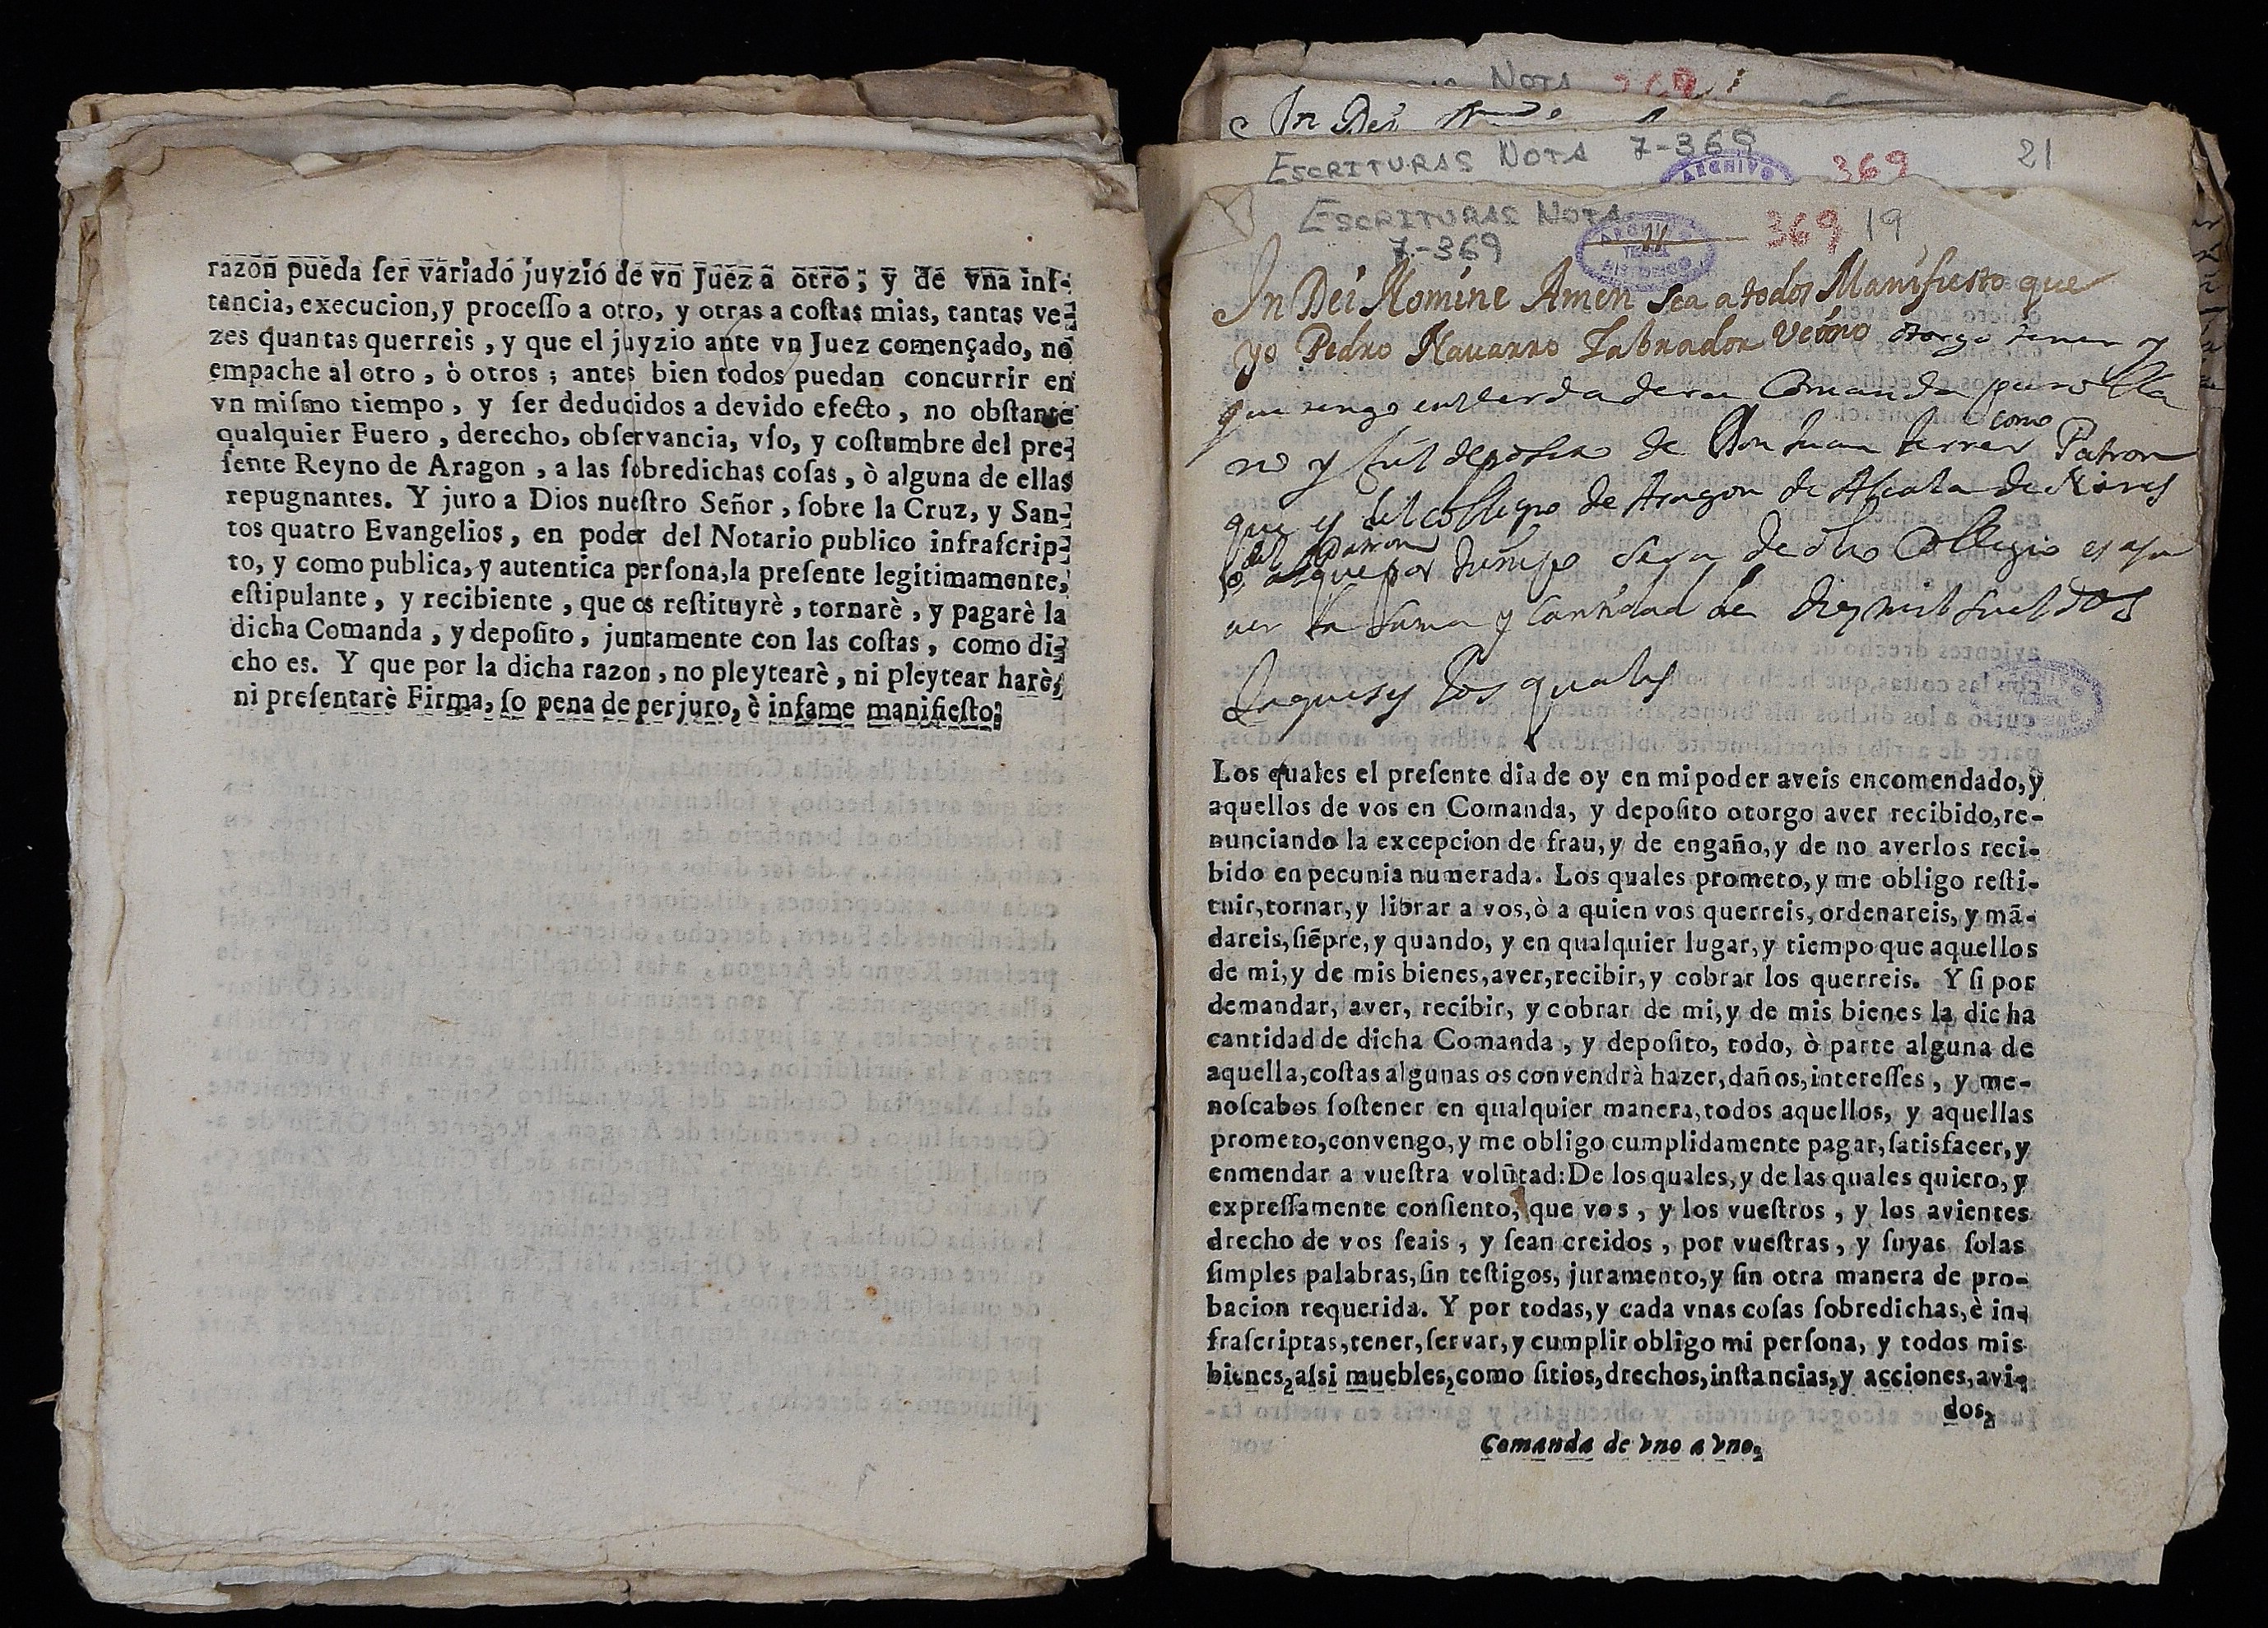 razon pueda ser variado juyzio de vn Juez a otro; y de vna ins-
tancia, execucion, y processo a otro, y otras a costas mias, tantas ve-
zes quantas querreis, y que el juyzio ante vn Juez començado, no
empache al otro, ò otros; antes bien todos puedan concurrir en
vn mismo tiempo, y ser deducidos a devido efecto, no obstante
qualquier Fuero, derecho, observancia, vso, y costumbre del pre-
sente Reyno de Aragon, a las sobredichas cosas, ò alguna de ellas
repugnantes. Y juro a Dios nuestro Señor, sobre la Cruz, y San-
tos quatro Evangelios, en poder del Notario publico infrascrip-
to, y como publica, y autentica persona, la presente legitimamente,
estipulante, y recibiente, que os restituyrè, tornarè, y pagarè la
dicha Comanda, y deposito, juntamente con las costas, como di-
cho es. Y que por la dicha razon, no pleytearè, ni pleytear harè,
ni presentarè Firma, so pena de perjuro, è infame manifiesto.
NOTA 369
In Dei
ESCRITURAS NOTA 7-369 ARCHIVO 369 21
ESCRITURAS NOTA 369 19
7-369
In Dei Nomine Amen Sea a todos Manifiesto que
yo Pedro Nauarro Labrador Veçino otorgo tener y
que tengo en verdadera Comanda puro lla
no y fiel deposito de Don Juan ferrer como Patron
que es del Collegio de Aragon de Alcala de
el Patron
que por tiempo sera de dho Collegio es a sa
uer la suma y Cantidad de diez mil sueldos
Jaqueses los quales
Los quales el presente dia de oy en mi poder aveis encomendado, y
aquellos de vos en Comanda, y deposito otorgo aver recibido, re-
nunciando la excepcion de frau, y de engaño, y de no averlos reci-
bido en pecunia numerada. Los quales prometo, y me obligo resti-
tuir, tornar, y librar a vos, ò a quien vos querreis, ordenareis, y mã-
dareis, siẽpre, y quando, y en qualquier lugar, y tiempo que aquellos
de mi, y de mis bienes, aver, recibir, y cobrar los querreis. Y si por
demandar, aver, recibir, y cobrar de mi, y de mis bienes la dicha
cantidad de dicha Comanda, y deposito, todo, ò parte alguna de
aquella, costas algunas os convendrà hazer, daños, interesses, y me-
noscabos sostener en qualquier manera, todos aquellos, y aquellas
prometo, convengo, y me obligo cumplidamente pagar, satisfacer, y
enmendar a vuestra volũtad: De los quales, y de las quales quiero, y
expressamente consiento, que vos, y los vuestros, y los avientes
drecho de vos seais, y sean creidos, por vuestras, y suyas solas
simples palabras, sin testigos, juramento, y sin otra manera de pro-
bacion requerida. Y por todas, y cada vnas cosas sobredichas, è in-
frascriptas, tener, servar, y cumplir obligo mi persona, y todos mis
bienes, assi muebles, como sitios, drechos, instancias, y acciones, avi-
dos,
Comanda de vno a vno.